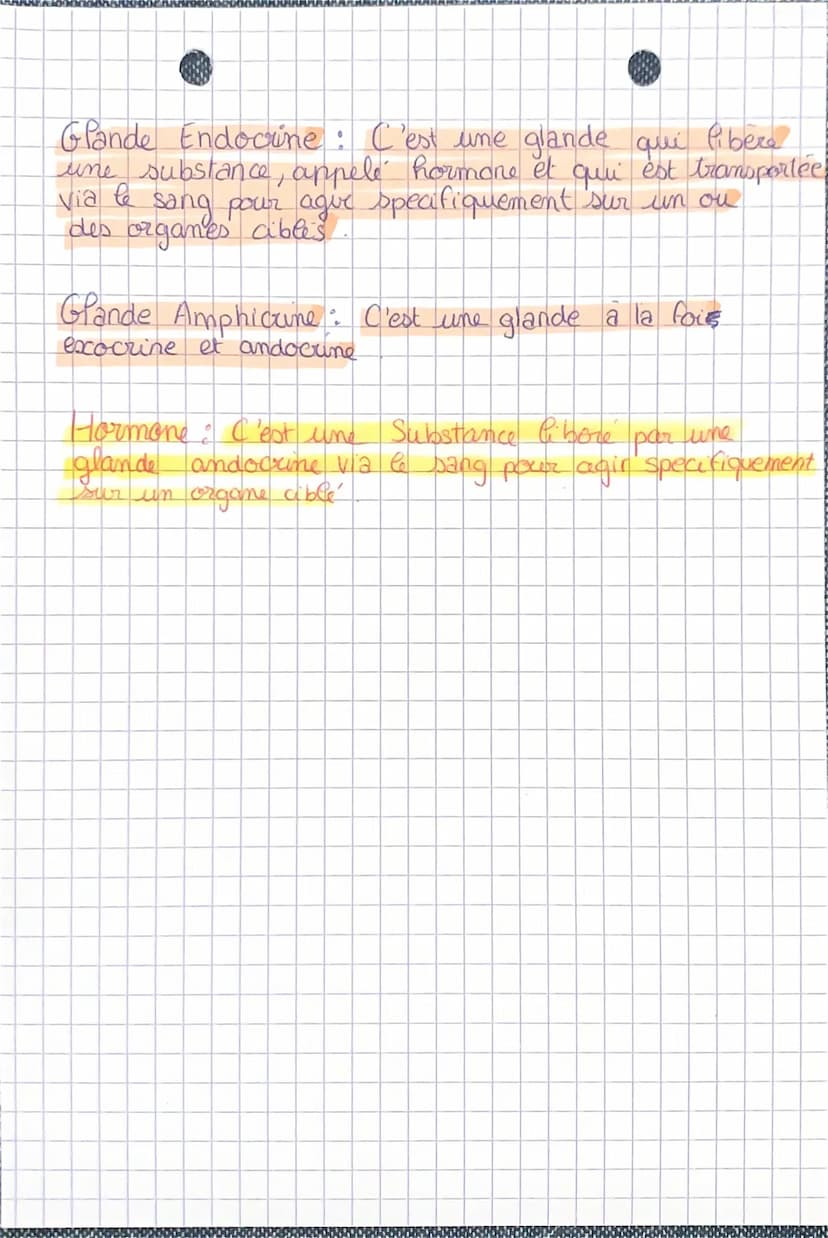 Glande Endocrine : C'est une glande qui libère
une substance, appelé hormone et qui est transportée
via le sang pour agir specifiquement sur un ou
des organes ciblés.
Glande Amphicrine : C'est une glande à la fois
exocrine et andocrine
Hormone : C'est une Substance liboré par une
glande andocrine via le sang pour agir specifiquement
sur un organe ciblé.